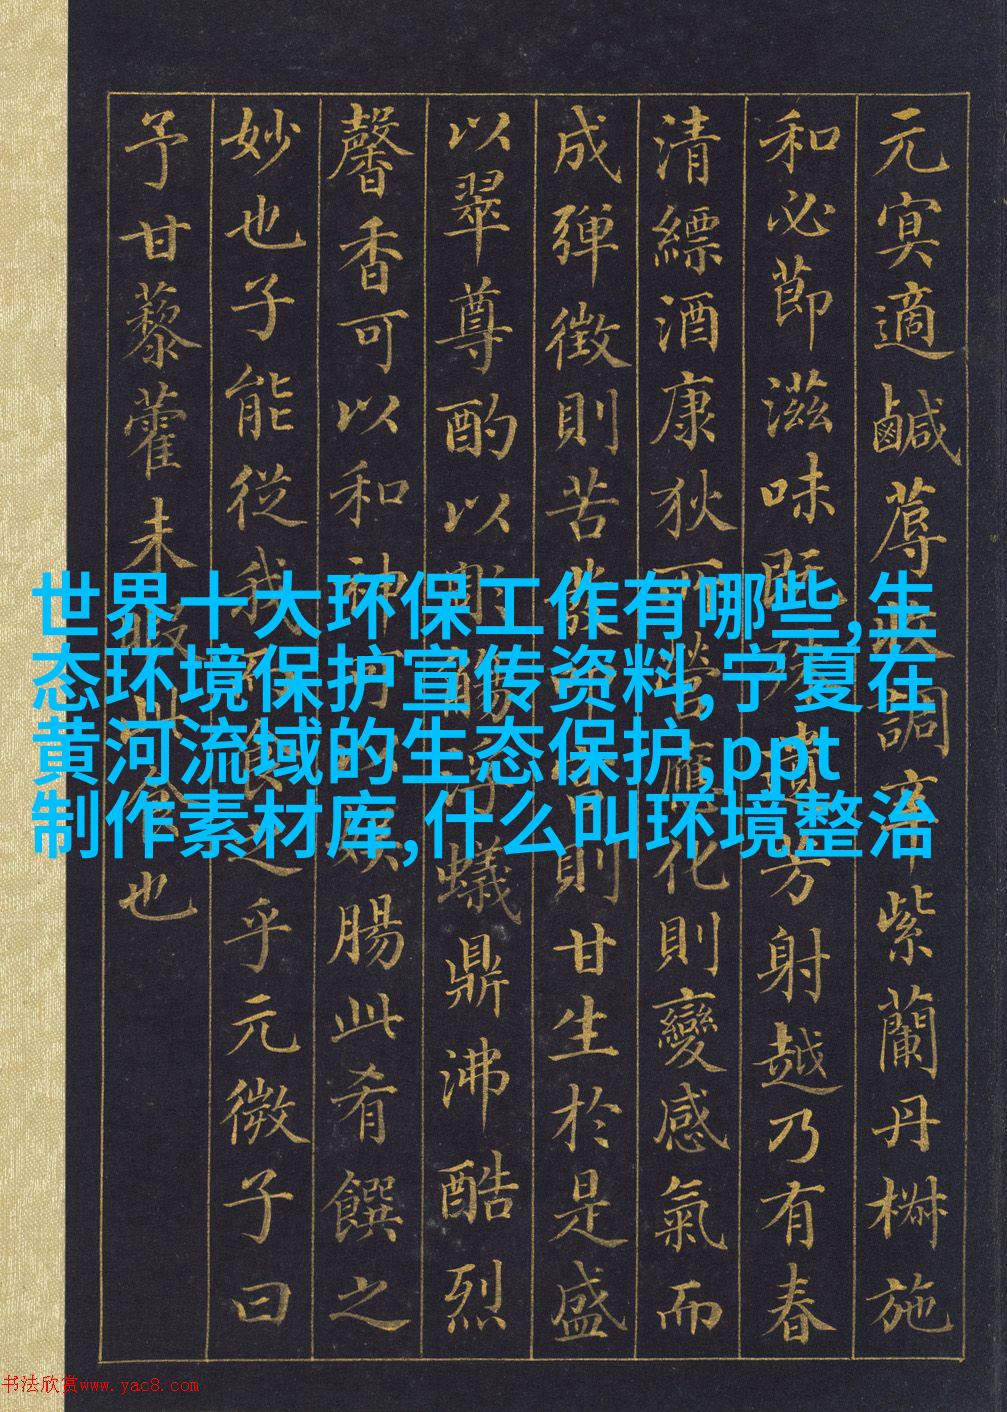 元冥適鹹蓐收調辛紫蘭丹椒施
和必節滋味既殊遺芳射越乃有春
清縹酒康狄所營應化則變感氣而
成彈徵則苦發叩宮則甘生於是盛
以翠尊酌以彫觴浮蟻鼎沸酷烈
馨香可以和神可以娛腸此肴饌之
妙也子能從我而食之乎元微子曰
予甘藜藿未暇此食也
世界十大环保工作有哪些,生
态环境保护宣传资料,宁夏在
黄河流域的生态保护,ppt
制作素材库,什么叫环境整治
书法欣赏www.yac8.com